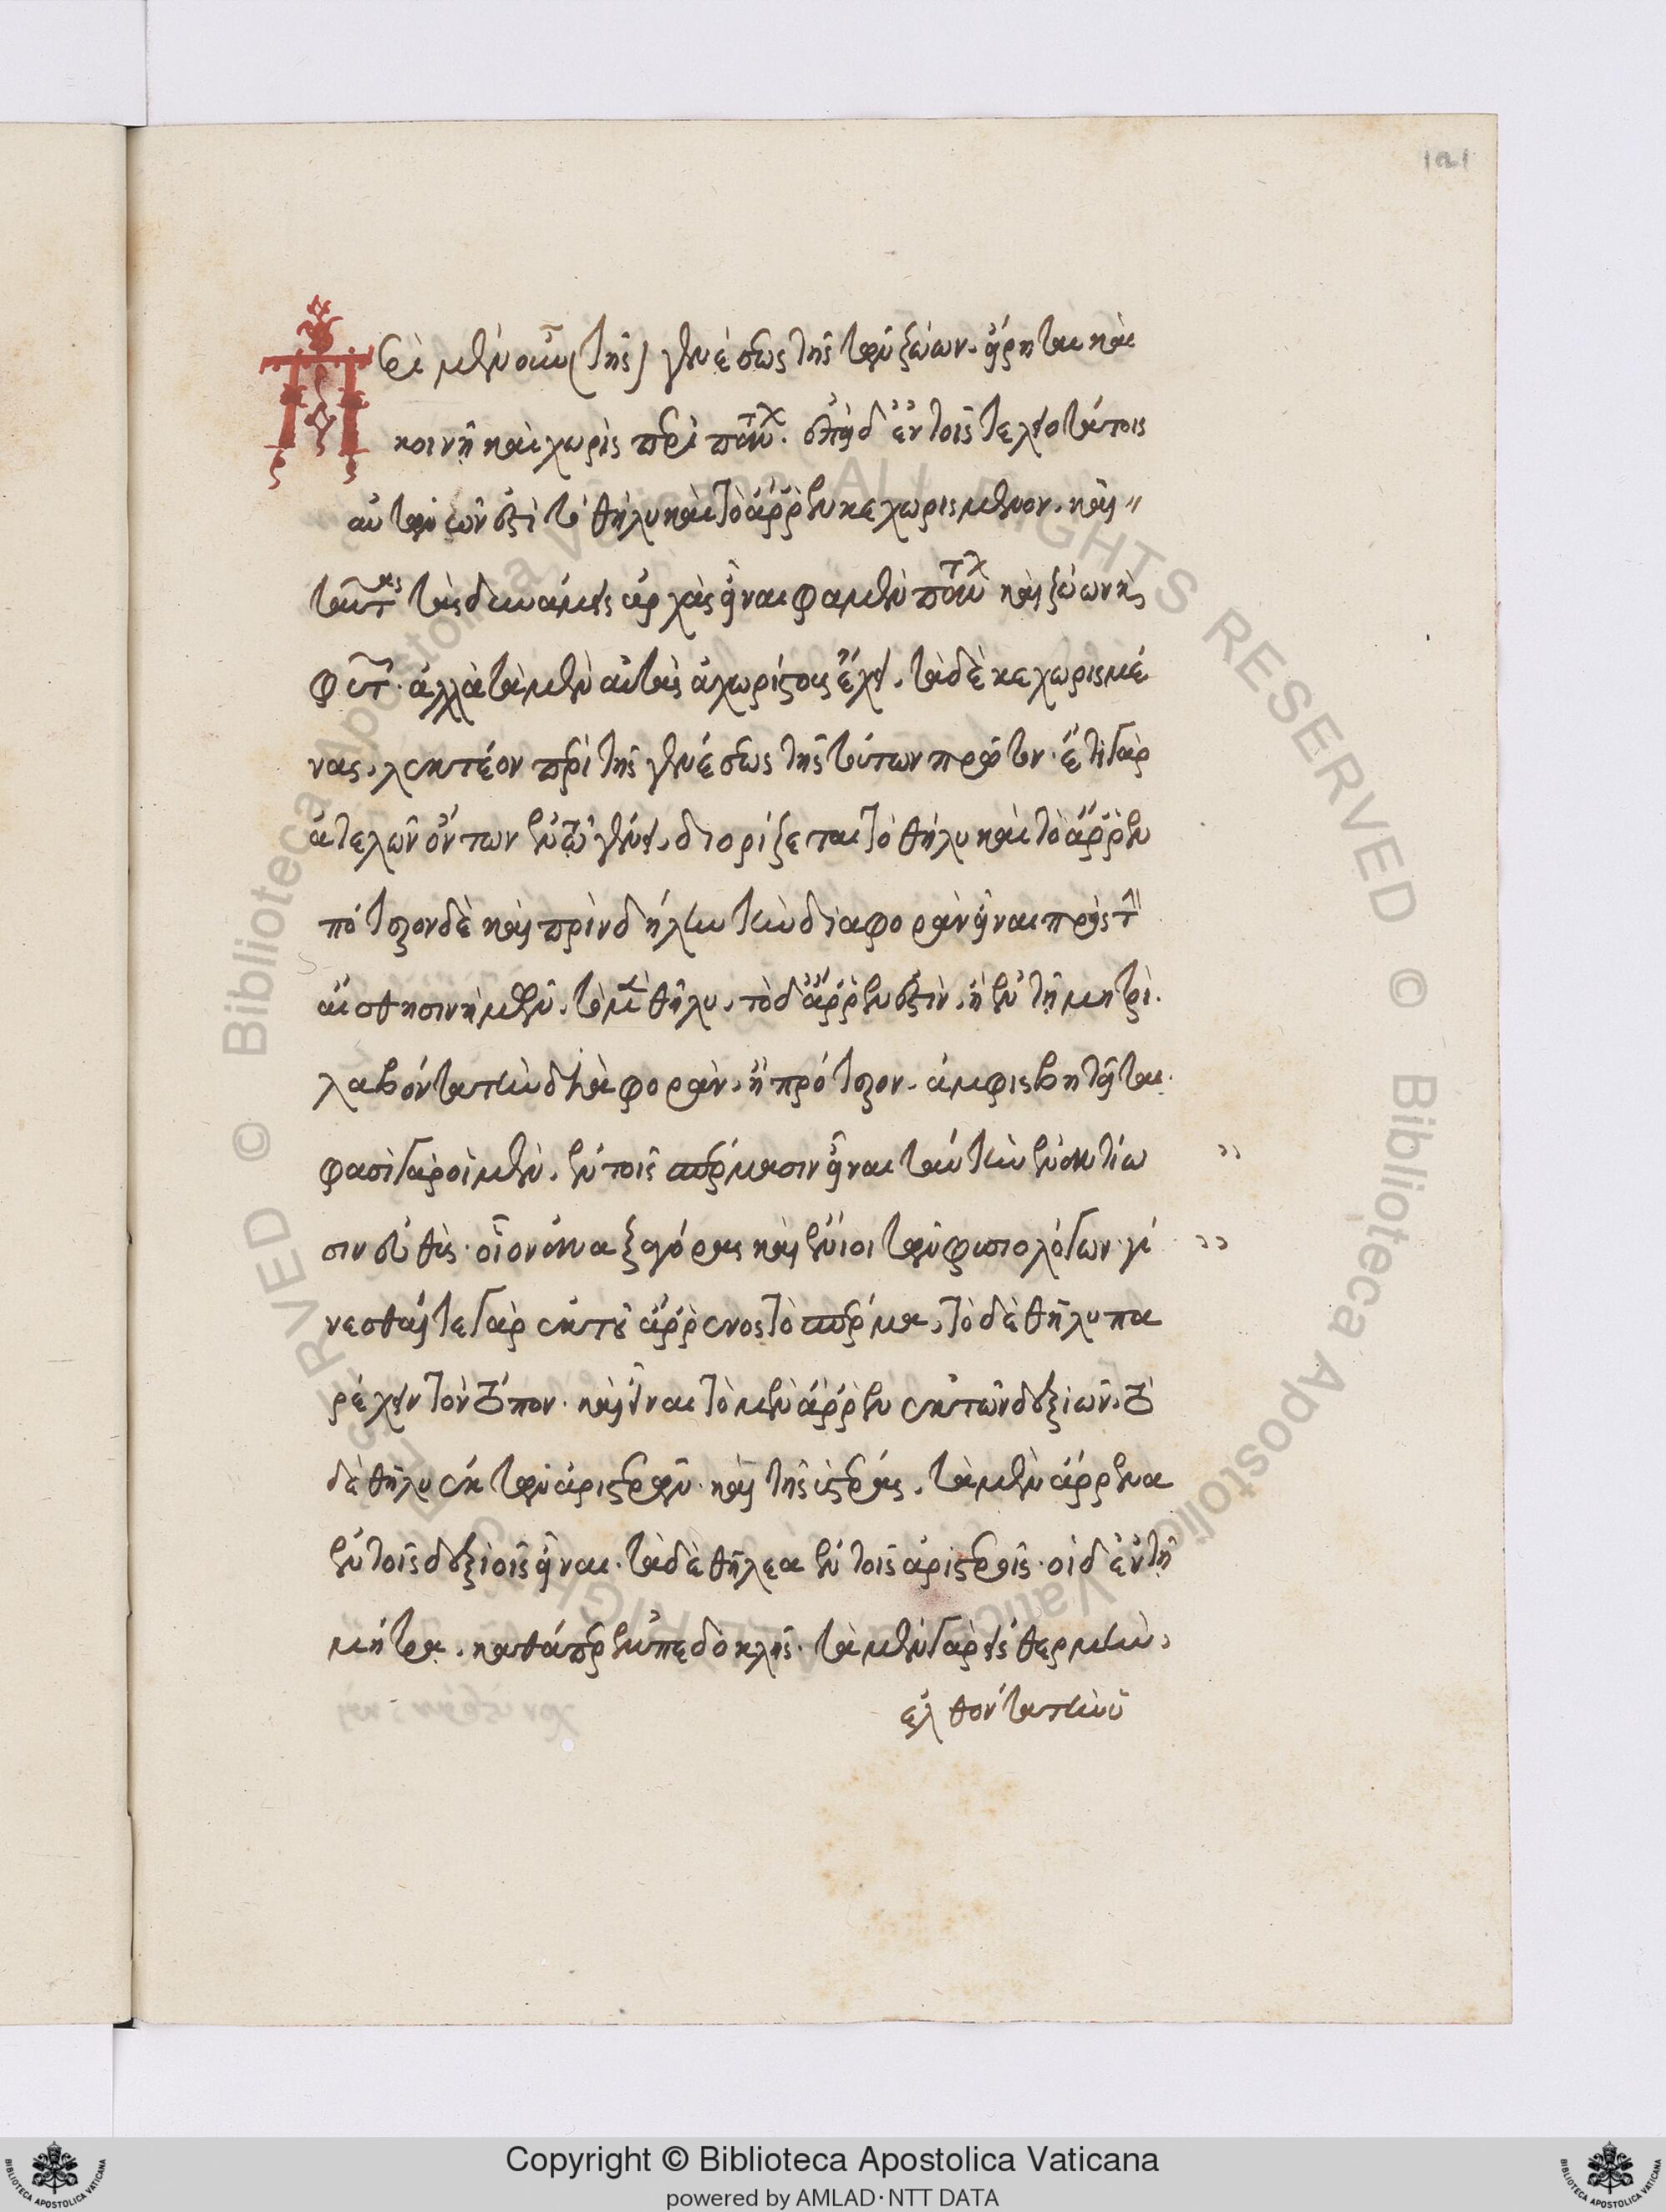 191
Περὶ μὲν οὖν (τῆς) γενέσεως τῆς τῶν ζώων. εἴρηται καὶ
κοινῇ καὶ χωρὶς περὶ πάντων. ἐπεὶ δ' ἐν τοῖς τελειοτάτοις
αὐτῶν ἐστὶ τὸ θῆλυ καὶ τὸ ἄρρεν κεχωρισμένον. καὶ
ταύτας τὰς δυνάμεις ἀρχὰς εἶναι φαμὲν πάντων καὶ ζώων κ
φυτ. ἀλλὰ τὰ μὲν αὐτὰς ἀχωρίστους ἔχει. τὰ δὲ κεχωρισμέ
νας, λεκτέον περὶ τῆς γενέσεως τῆς τούτων πρῶτον. ἔτι γὰρ
ἀτελῶν ὄντων ἐν τῷ γένει, διορίζεται τὸ θῆλυ καὶ τὸ ἄρρεν
πότερον δὲ καὶ πρὶν δήλην τὴν διαφορὰν εἶναι πρὸς τ
αἴσθησιν ἡμῶν. τὸ μὲν θῆλυ, τὸ δ' ἄρρεν ἐστὶν, ἢ ἐν τῇ μητρὶ.
λαβόντα τὴν διαφορὰν, ἢ πρότερον. ἀμφισβητεῖται.
φασὶ γὰρ οἱ μὲν. ἐν τοῖς σπέρμασιν εἶναι ταύτην ἐναντίω
σιν εὐθὺς. οἷον ἀναξαγόρας καὶ ἔνιοι τῶν φυσιολόγων. γί
νεσθαί τε γὰρ ἐκ τοῦ ἄρρενος τὸ σπέρμα, τὸ δὲ θῆλυ πα
ρέχειν τὸν τόπον. καὶ εἶναι τὸ μὲν ἄρρεν ἐκ τῶν δεξιῶν, τὸ
δὲ θῆλυ ἐκ τῶν ἀριστερῶν. καὶ τῆς ὑστέρας. τὰ μὲν ἄρρενα
ἐν τοῖς δεξιοῖς εἶναι. τὰ δὲ θήλεα ἐν τοῖς ἀριστεροῖς. οἱ δ' ἐν τῇ
μήτρᾳ. καθάπερ ἐμπεδοκλῆς. τὰ μὲν γὰρ εἰς θερμὴν,
ἐλθόντα τὴν ὑ
Copyright © Biblioteca Apostolica Vaticana
powered by AMLAD·NTT DATA